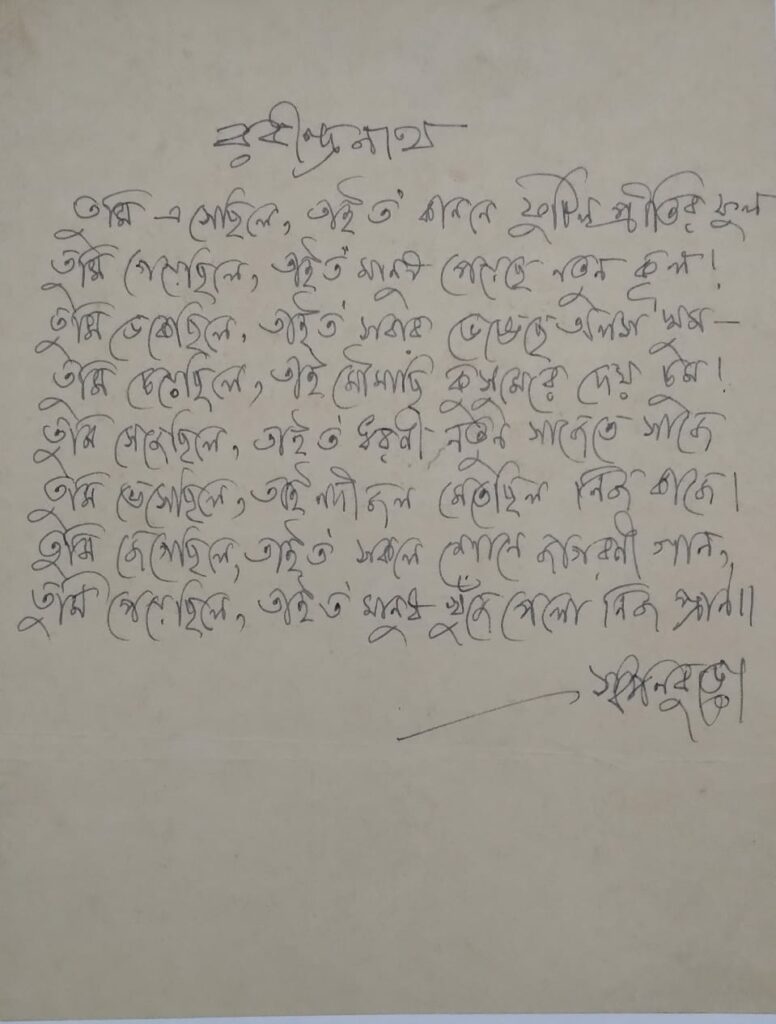 রবীন্দ্রনাথ
তুমি এসেছিলে, তাই ত' কাননে ফুটিল প্রীতির ফুল
তুমি গেয়েছিলে, তাই ত' মানুষ পেয়েছে নতুন কূল!
তুমি ডেকেছিলে, তাই ত' সবার ভেঙেছে অলস ঘুম—
তুমি চেয়েছিলে, তাই মৌমাছি কুসুমেরে দেয় চুম!
তুমি সেজেছিলে, তাই ত' ধরণী নতুন সাজেতে সাজে
তুমি ভেসেছিলে, তাই নদীজল মেতেছিল নিজ কাজে।
তুমি জেগেছিলে, তাই ত' সকলে শোনে জাগরণী গান,
তুমি পেয়েছিলে, তাই ত' মানুষ খুঁজে পেলো নিজ প্রাণ॥
— স্বপনবুড়ো।